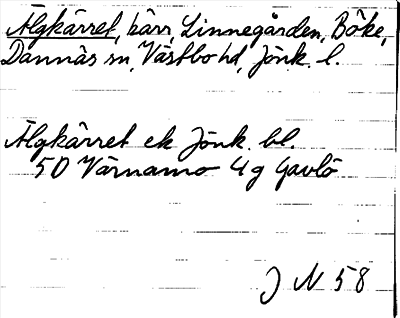 Älgkärret, kärr, Linnegården, Böke,
Dannäs sn, Västbo hd, Jönk. l.
Älgkärret ek Jönk. bl.
5D Värnamo 4g Gavlö
J N 58